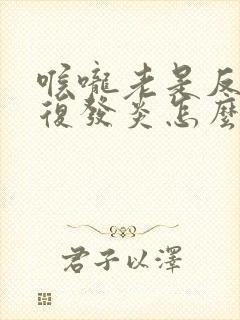 喉嚨老是反
復發炎怎麼
君子以澤